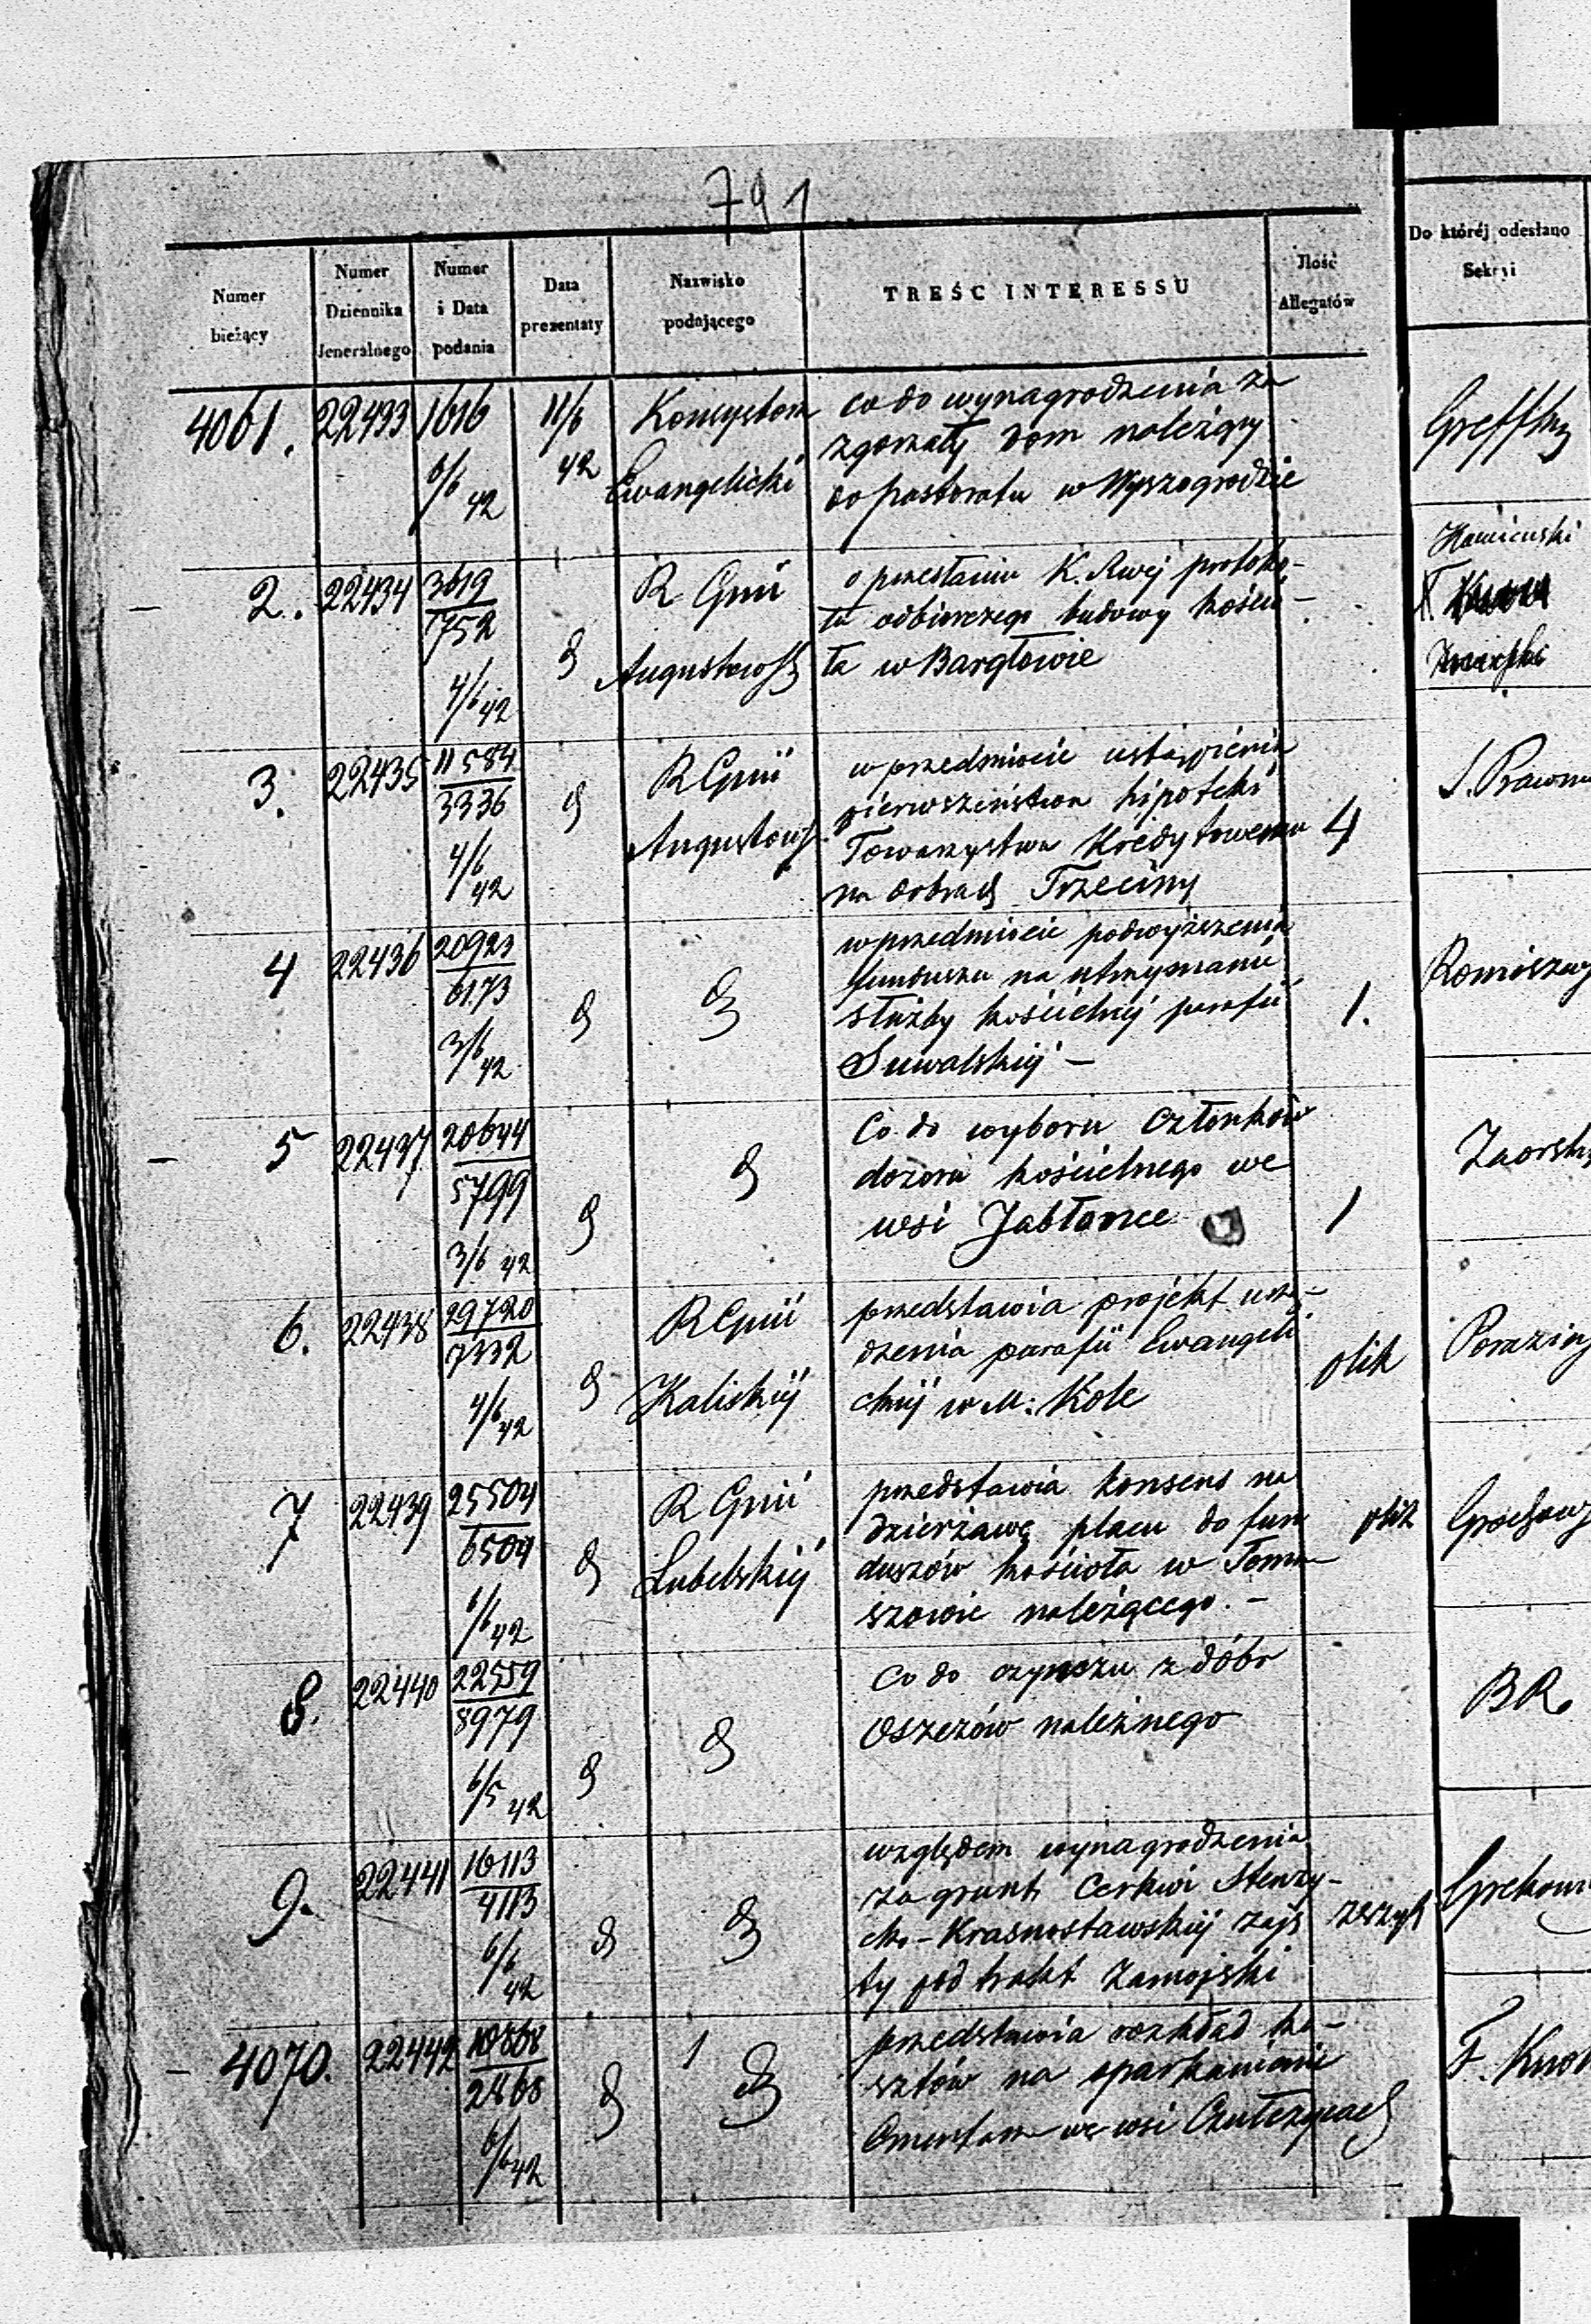 791
Numer bieżący
Numer Dziennika Jeneralnego
Numer i Data podania
Data prezentaty
Nazwisko podającego
TREŚĆ INTERESSU
Ilość Allegatów
Do któréj odesłano Sekcyi
4061. 22433 1616 11/6 Konsystorz co do wynagrodzenia za
6/6 42 42 Ewangelicki zgorzały dom należący
do pastoratu w Wyszogrodzie
2. 22434 3619 R Gnii o przesłaniu K. Rwej protokó-
1752 Augustows łu odbiorczego budowy kościo-
4/6 42 ła w Bargłowie
Kamieński
3. 22435 11584 R Gnii w przedmiocie ustąpienia
3336 Augustows pierwszeństwa hipoteki
4/6 42 Towarzystwu Kredytowemu 4
na dobrach Trzeciny
4 22436 20923 w przedmiocie podwyższenia
6173 funduszu na utrzymanie
3/6 42 służby kościelnéj parafii 1.
Suwalskiéj –
5 22437 20644 Co do wyboru Członków
5799 dozoru kościelnego we
3/6 42 wsi Jabłonce 1
6. 22438 29720 R Gnii przedstawia projekt urzą-
7332 Kaliskiéj dzenia parafii Ewangeli
4/6 42 ckiéj w M: Kole plik
7 22439 25504 R Gnii przedstawia konsens na
6504 Lubelskiéj dzierżawę placu do fun plik
6/42 duszów kościoła w Toma-
szowie należącego. –
8. 22440 22559 Co do czynszu z dóbr
8979 Oszczów należnego
6/5 42
BR.
9. 22441 16113 względem wynagrodzenia
4113 za grunt Cerkwi Stenzy-
6/6 42 cko-Krasnostawskiéj zaję zeszyt
ty pod trakt Zamojski
4070. 22442 10868 przedstawia rozkład ko-
2868 sztów na oparkanienie
6/6 42 Cmentarza we wsi Czułczycach